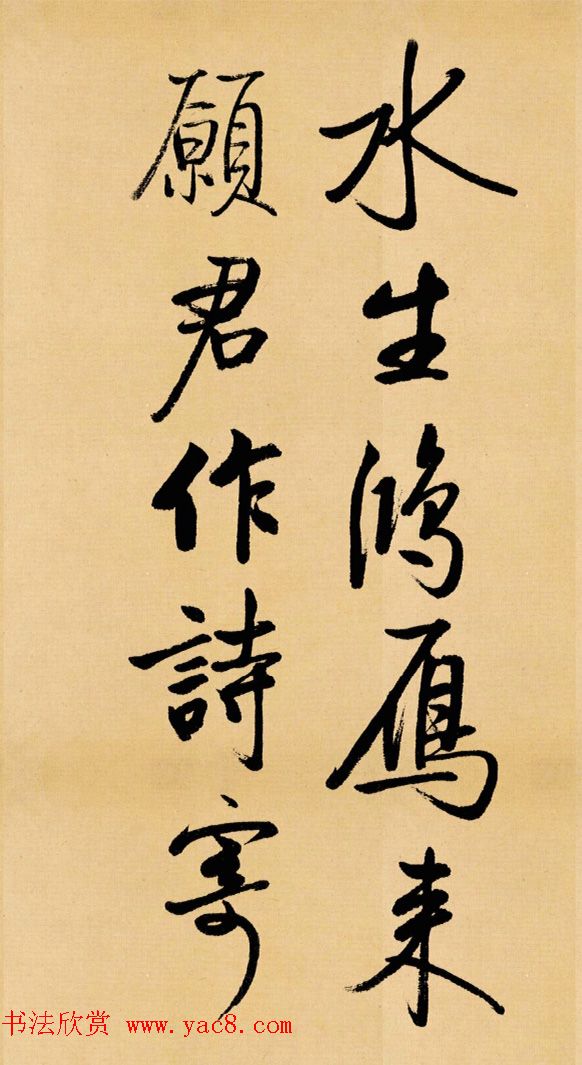 水生鴻雁来
願君作詩寄
书法欣赏 www.yac8.com